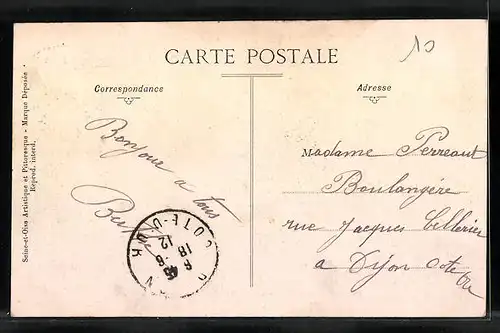 CARTE POSTALE
10
Correspondance
Adresse
Seine-et-Oise Artistique et Pittoresque - Marque Déposée
Reprod. interd.
Bonjour a tous
MADAME Perreaut
Boulangère
rue Jacques Cellerier
a Dijon Cote
d'or
COTE-D'OR
12
18
6